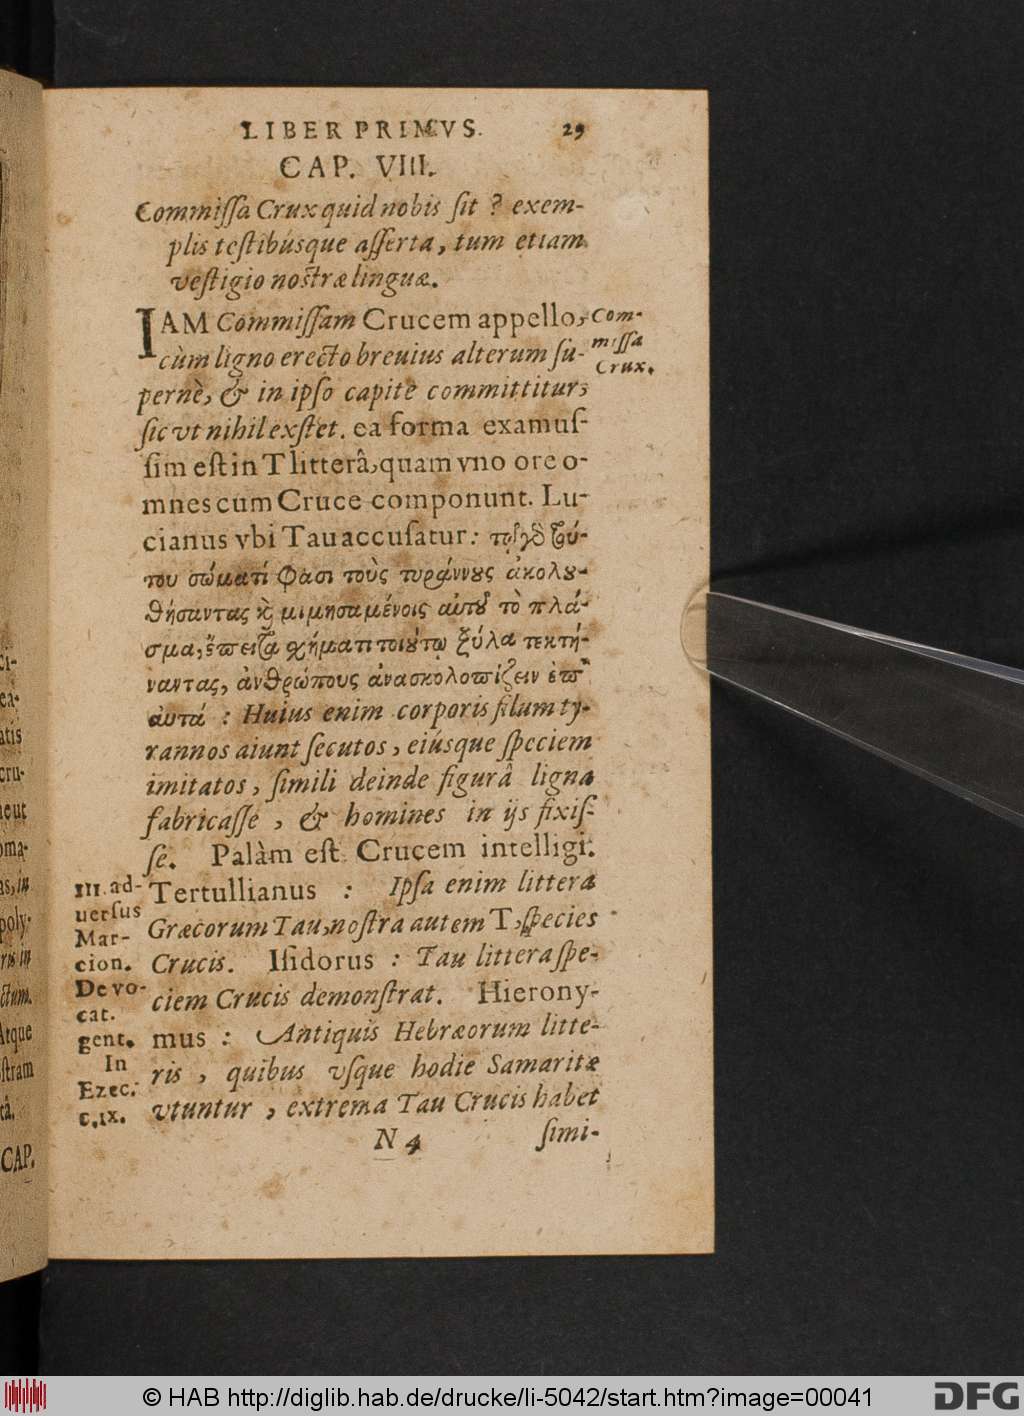 LIBER PRIMVS. 29
CAP. VIII.
Commiſſa Crux quid nobis ſit ? exem-
plis teſtibúsque aſſerta, tum etiam
veſtigio noſtræ linguæ.
IAM Commiſſam Crucem appello,
cùm ligno erecto breuius alterum ſu-
pernè, & in ipſo capite committitur,
ſic vt nihil exſtet. ea forma examuſ-
ſim eſt in T litterâ, quam vno ore o-
mnes cum Cruce componunt. Lu-
cianus vbi Tau accuſatur: τῷ γδ τού-
του σώματί φασι τοὺς τυράννους ἀκολου-
θήσαντας καὶ μιμησαμένοις αὐτοῦ τὸ πλά-
σμα, ἔπειτα σχήματι τοιούτῳ ξύλα τεκτή-
ναντας, ἀνθρώπους ἀνασκολοπίζειν ἐπ'
αὐτά : Huius enim corporis filum ty-
rannos aiunt ſecutos, eiúsque ſpeciem
imitatos, ſimili deinde figurâ ligna
fabricaſſe, & homines in ijs fixiſ-
ſe. Palàm eſt Crucem intelligi.
Tertullianus : Ipſa enim littera
Græcorum Tau, noſtra autem T, ſpecies
Crucis. Iſidorus : Tau littera ſpe-
ciem Crucis demonſtrat. Hierony-
mus : Antiquis Hebræorum litte-
ris, quibus vſque hodie Samaritæ
vtuntur, extrema Tau Crucis habet
N 4 ſimi-
Com-
miſſa
Crux.
III. ad-
uerſus
Mar-
cion.
De vo-
cat.
gent.
In
Ezec.
c.ix.
ci-
ea-
atis
cru-
neut
oma-
as, in
poly-
ris in
ctum.
Atque
ſtram
tâ.
CAP.
© HAB http://diglib.hab.de/drucke/li-5042/start.htm?image=00041
DFG